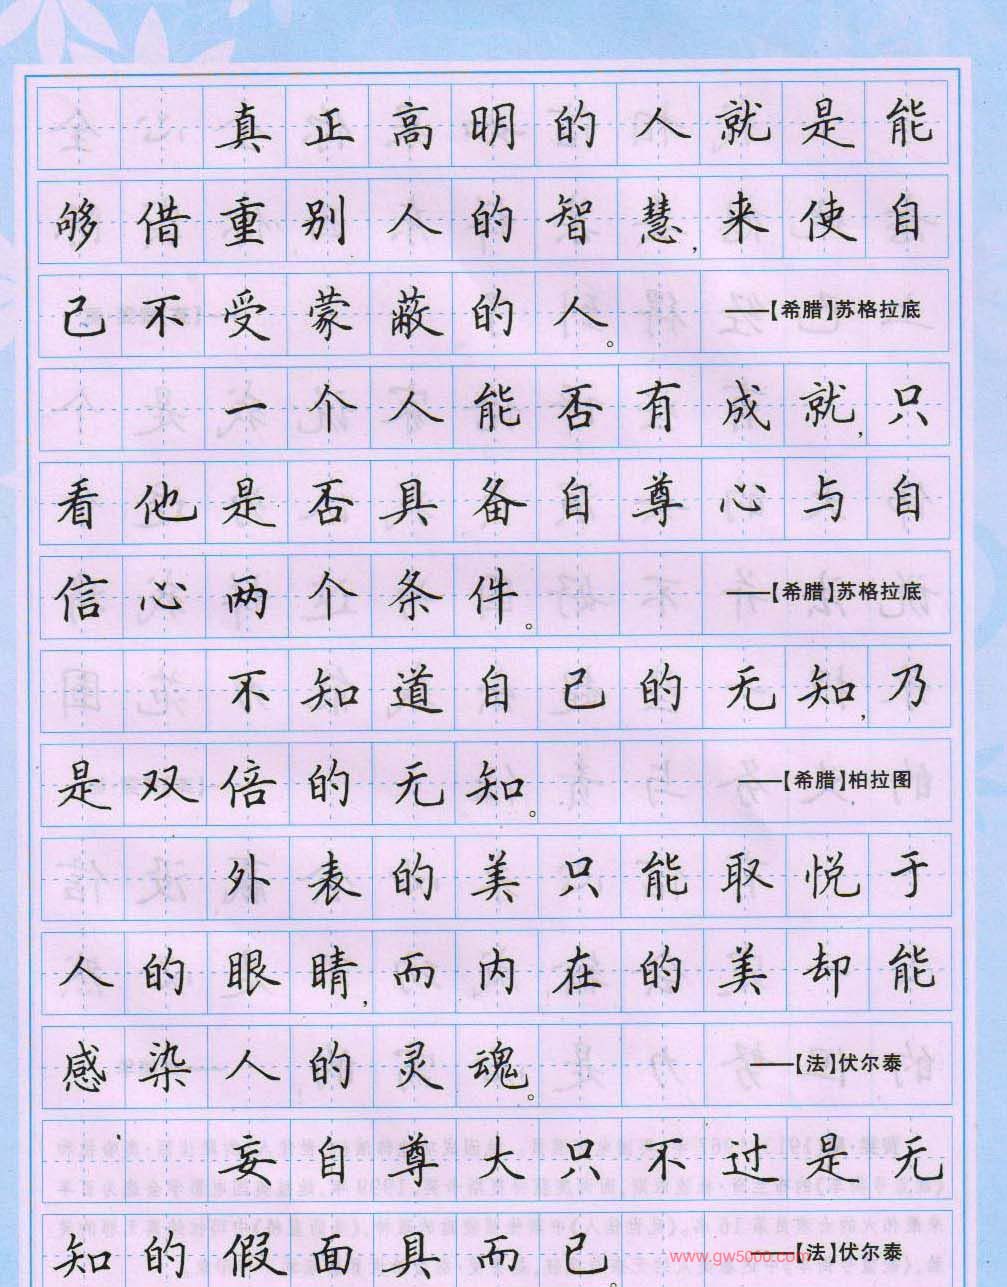 真正高明的人就是能
够借重别人的智慧,来使自
己不受蒙蔽的人。 ——[希腊]苏格拉底
一个人能否有成就,只
看他是否具备自尊心与自
信心两个条件。 ——[希腊]苏格拉底
不知道自己的无知,乃
是双倍的无知。 ——[希腊]柏拉图
外表的美只能取悦于
人的眼睛,而内在的美却能
感染人的灵魂。 ——[法]伏尔泰
妄自尊大只不过是无
知的假面具而已。 ——[法]伏尔泰
www.gw5000.com